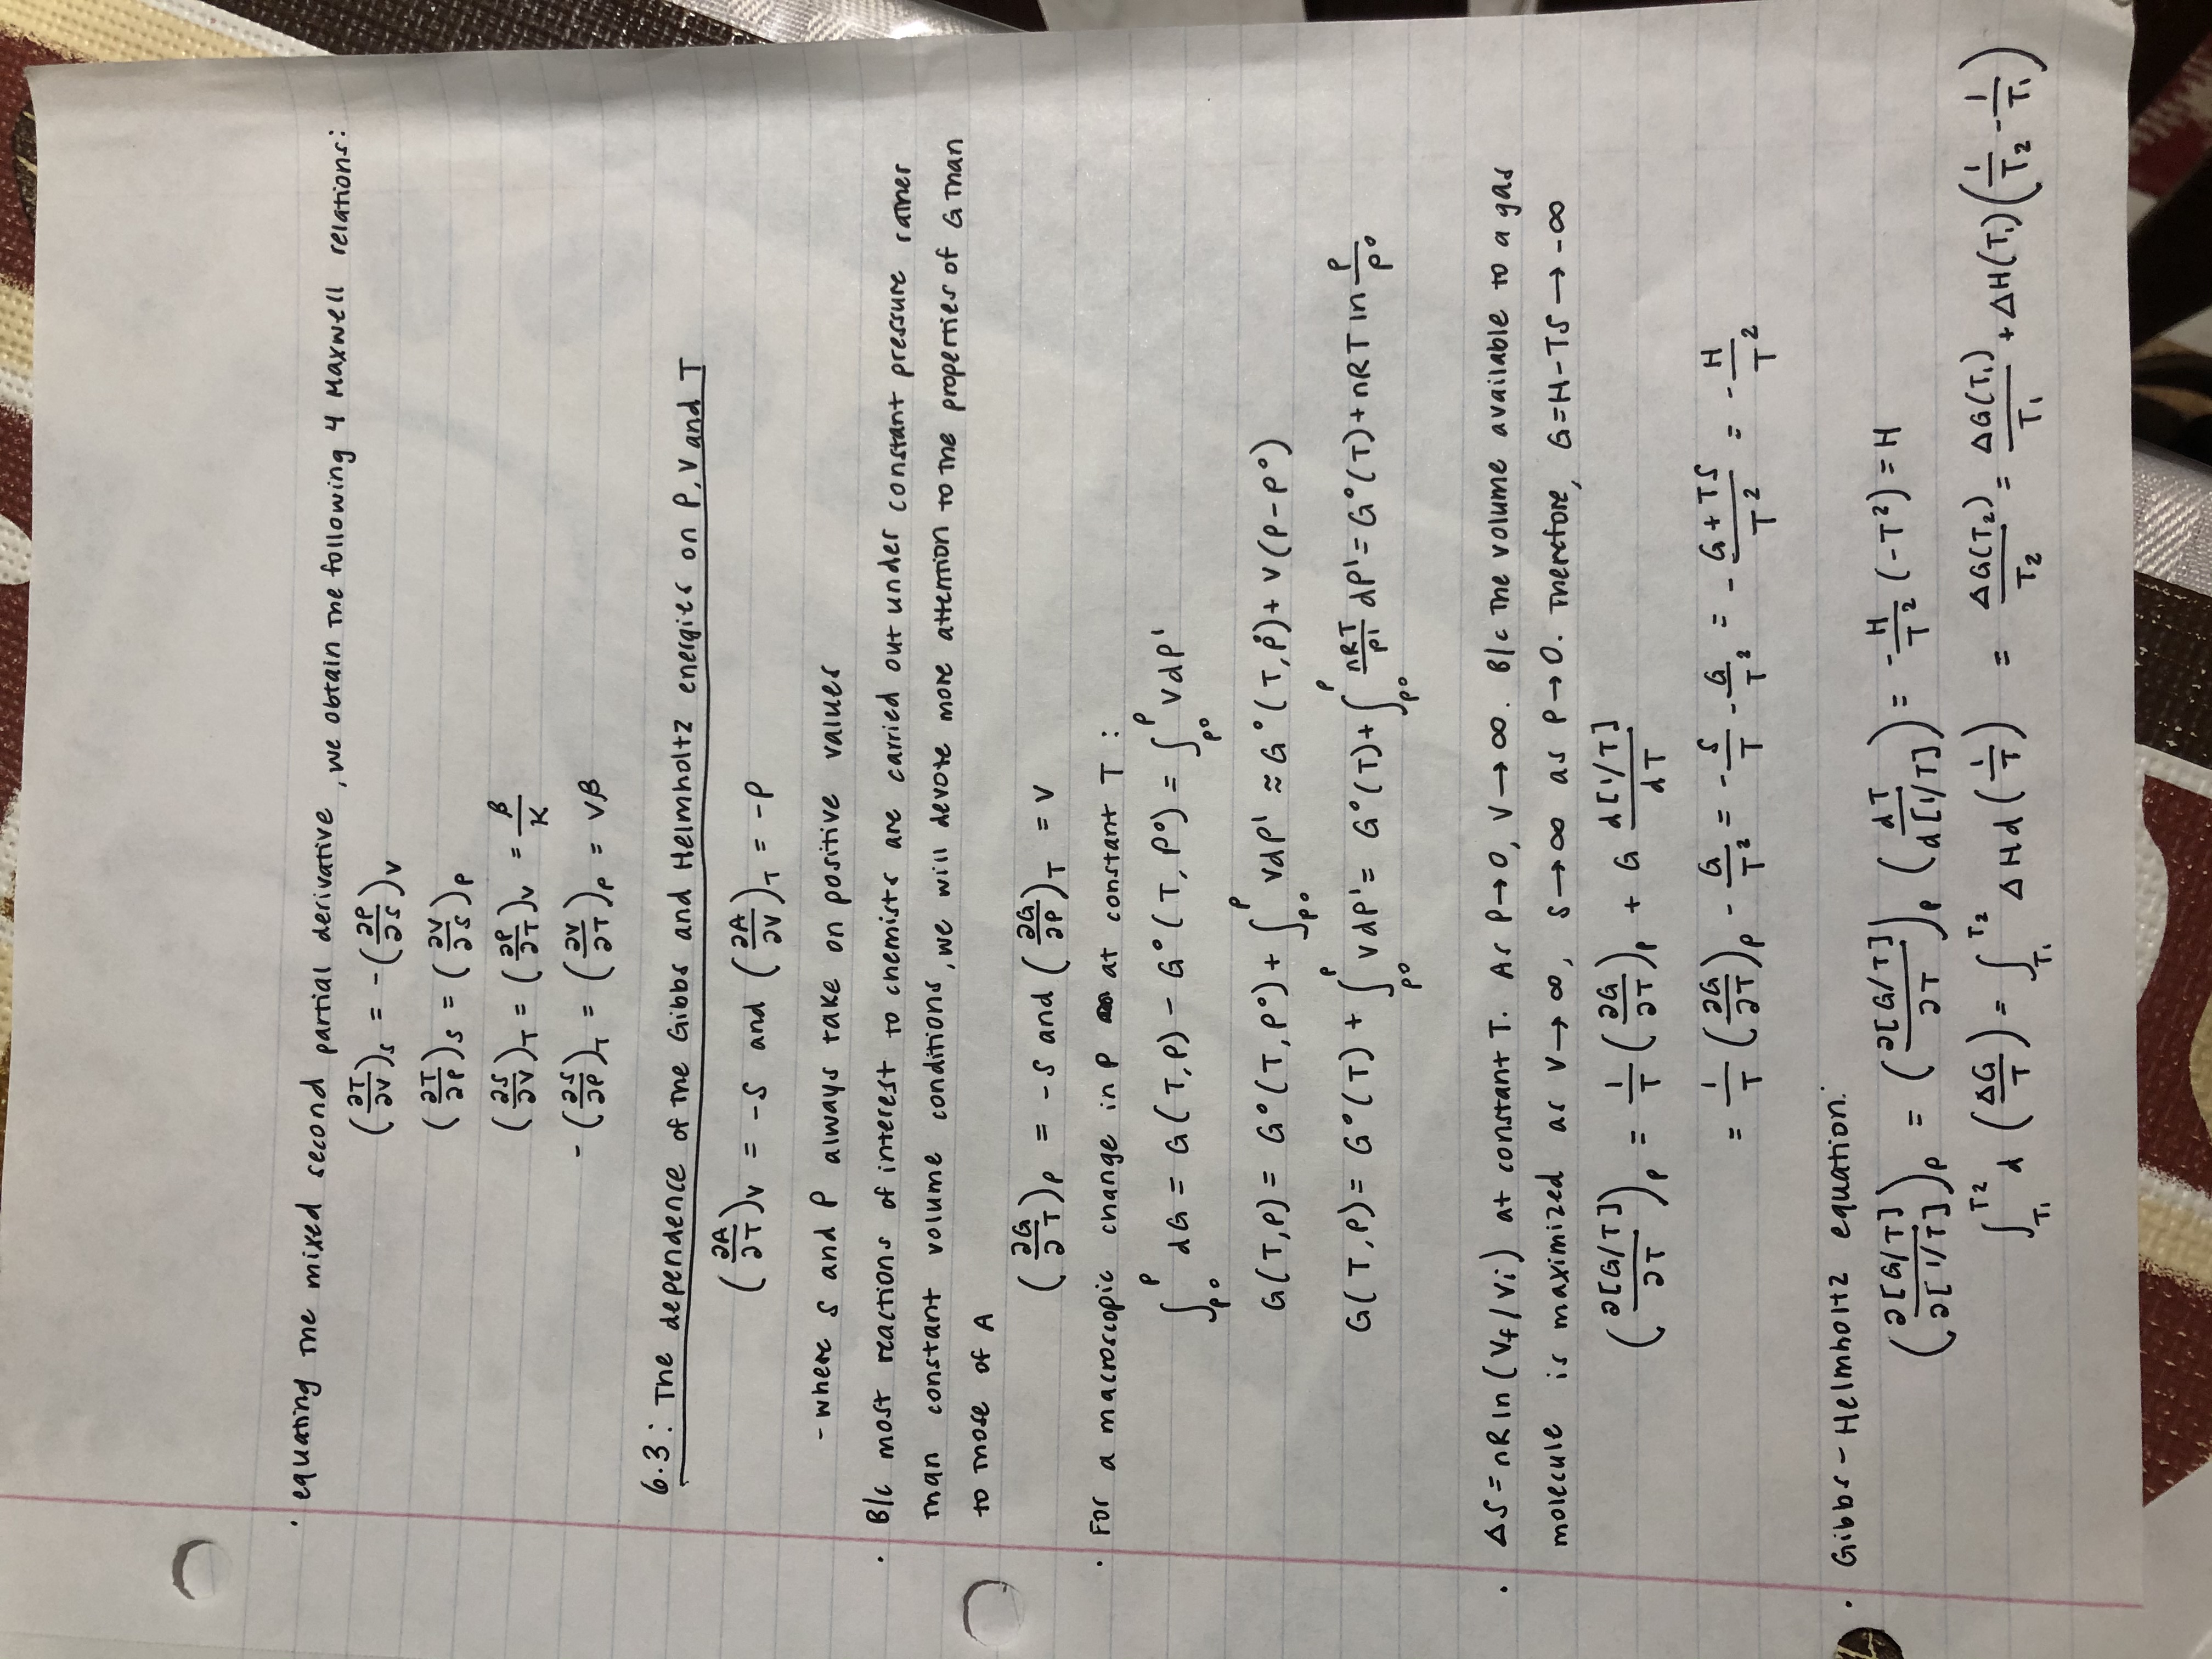 · equating the mixed second partial derivative, we obtain the following 4 Maxwell relations:
(∂T/∂V)_S = -(∂P/∂S)_V
(∂T/∂P)_S = (∂V/∂S)_P
(∂S/∂V)_T = (∂P/∂T)_V = β/κ
-(∂S/∂P)_T = (∂V/∂T)_P = Vβ
6.3: The dependence of the Gibbs and Helmholtz energies on P, V and T
(∂A/∂T)_V = -S and (∂A/∂V)_T = -P
- where S and P always take on positive values
· B/c most reactions of interest to chemists are carried out under constant pressure rather
than constant volume conditions, we will devote more attention to the properties of G than
to those of A
(∂G/∂T)_P = -S and (∂G/∂P)_T = V
· For a macroscopic change in P at constant T:
∫_{P°}^{P} dG = G(T,P) - G°(T,P°) = ∫_{P°}^{P} VdP'
G(T,P) = G°(T,P°) + ∫_{P°}^{P} VdP' ≈ G°(T,P°) + V(P-P°)
G(T,P) = G°(T) + ∫_{P°}^{P} VdP' = G°(T) + ∫_{P°}^{P} nRT/P' dP' = G°(T) + nRT ln P/P°
· ΔS = nR ln(Vf/Vi) at constant T. As P→0, V→∞. B/c the volume available to a gas
molecule is maximized as V→∞, S→∞ as P→0. Therefore, G=H-TS→-∞
(∂[G/T]/∂T)_P = 1/T (∂G/∂T)_P + G d[1/T]/dT
= 1/T (∂G/∂T)_P - G/T² = -S/T - G/T² = -(G+TS)/T² = -H/T²
· Gibbs-Helmholtz equation:
(∂[G/T]/∂[1/T])_P = (∂[G/T]/∂T)_P (dT/d[1/T]) = -H/T² (-T²) = H
∫_{T₁}^{T₂} d(ΔG/T) = ∫_{T₁}^{T₂} ΔHd(1/T) = ΔG(T₂)/T₂ = ΔG(T₁)/T₁ + ΔH(T₁)(1/T₂ - 1/T₁)